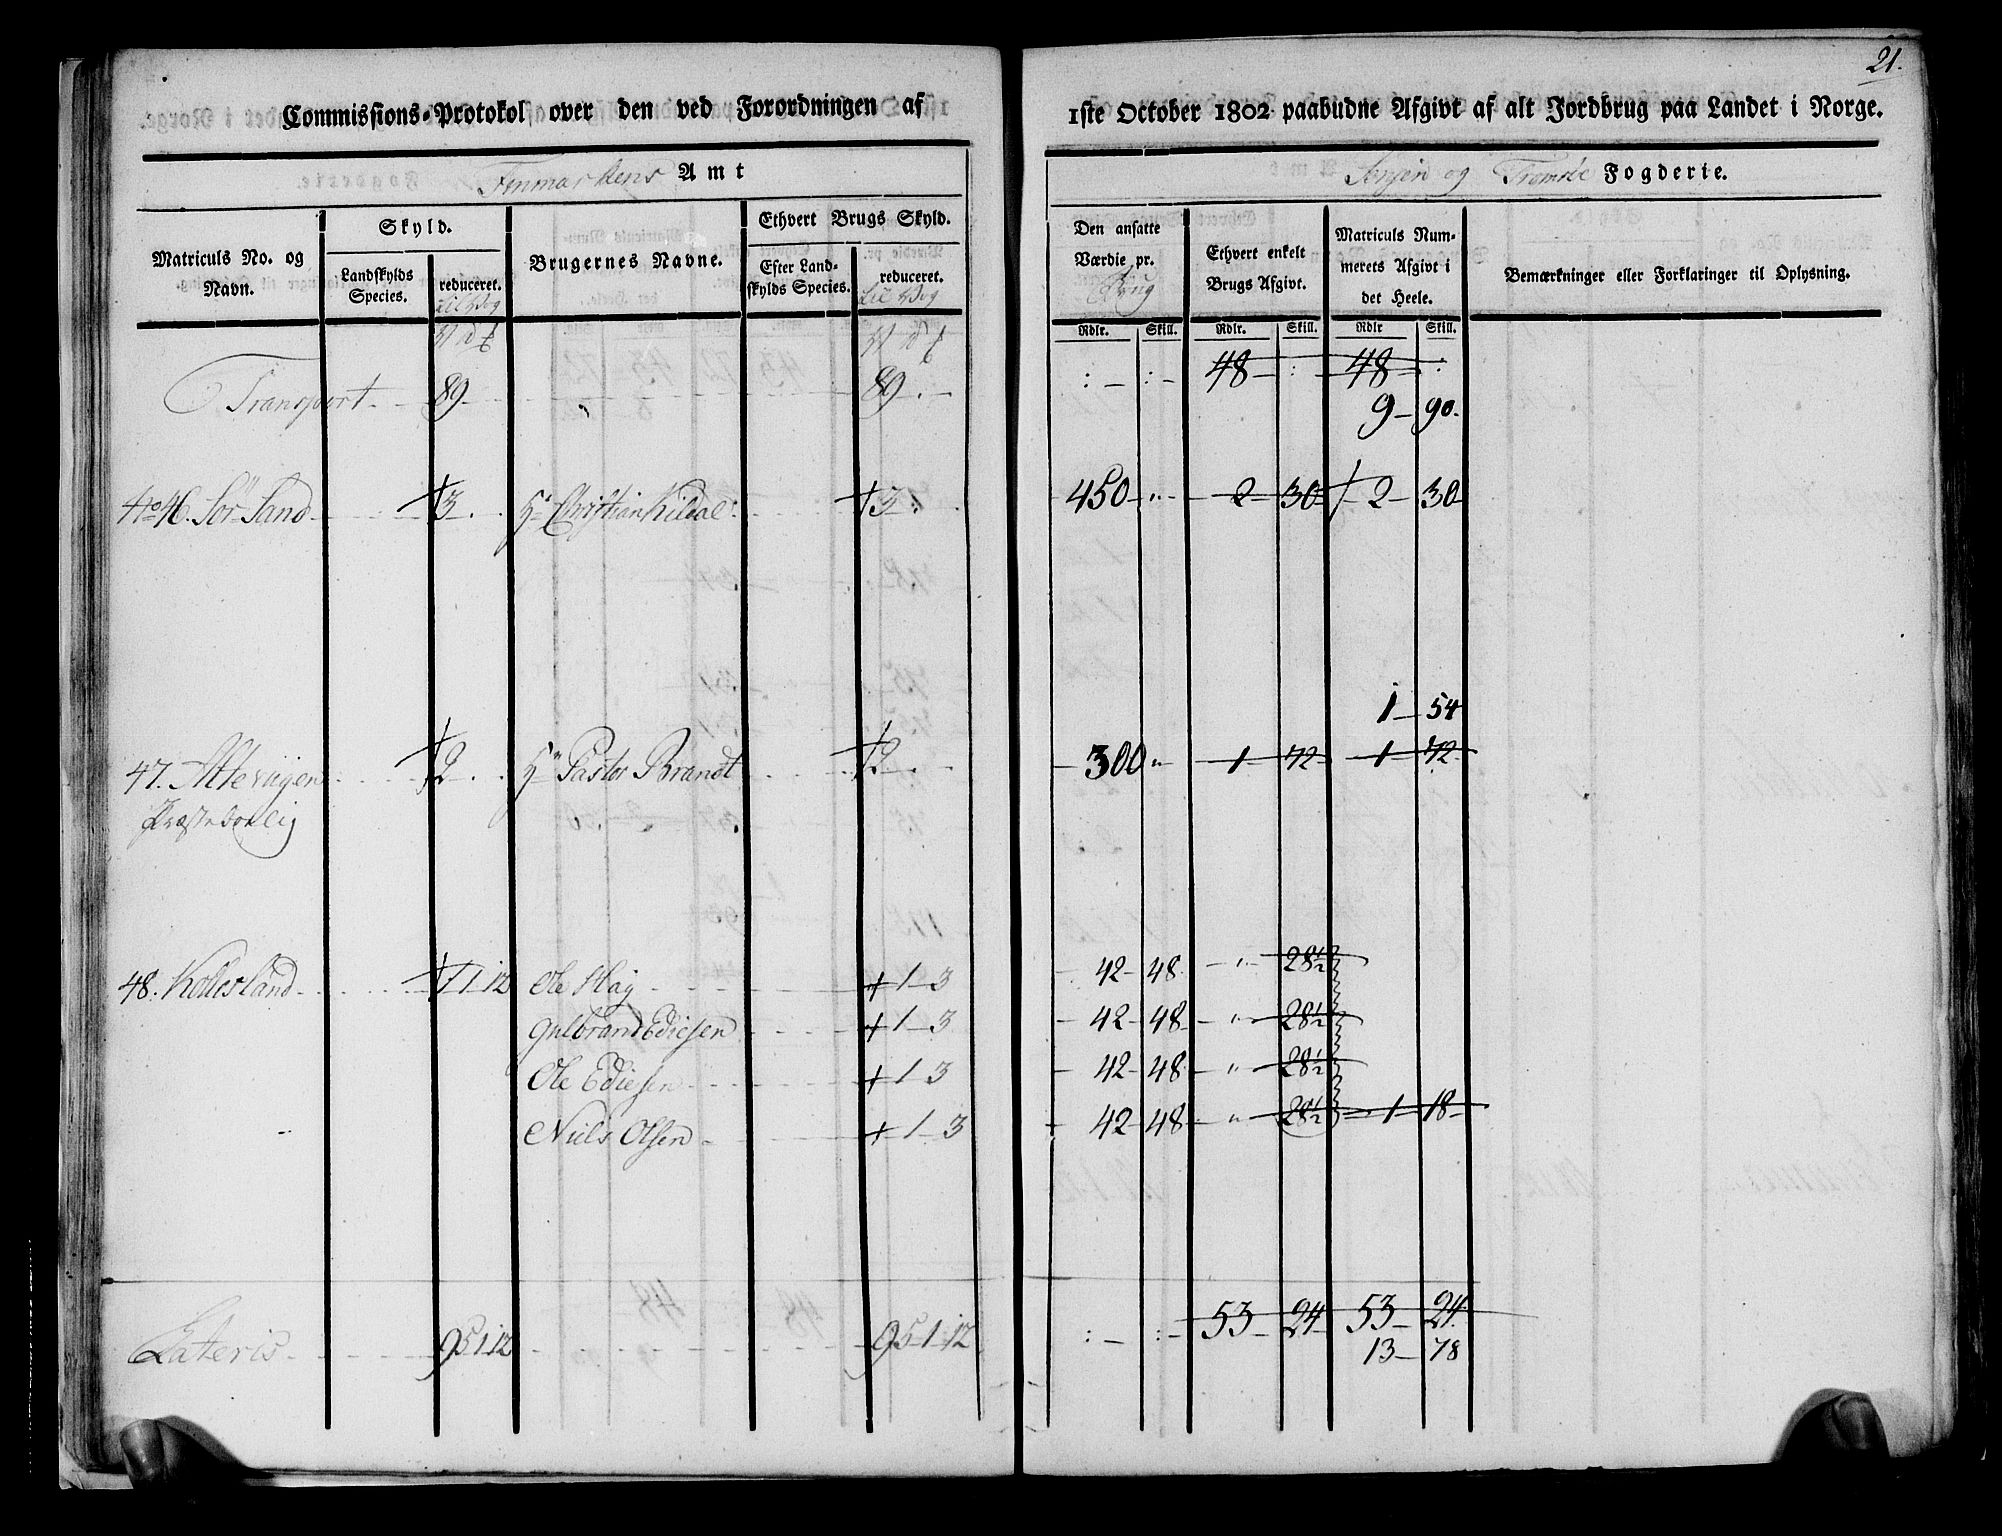 21.
Commissions-Protokol over den ved Forordningen af 1ste October 1802 paabudne Afgivt af alt Jordbrug paa Landet i Norge.
Finmarkens Amt
Senjen og Tromsöe Fogderie.
Matriculs No. og Navn.
Skyld.
Landskylds Species.
reduceret.
Brugernes Navne.
Ethvert Brugs Skyld.
Efter Landskylds Species.
reduceret.
Den ansatte Værdie pr. Brug
Ethvert enkelt Brugs Afgivt.
Matriculs Nummerets Afgivt i det Heele.
Bemærkninger eller Forklaringer til Oplysning.
Rdlr. Skill. Rdlr. Skill. Rdlr Skill.
Transport 89 89 : : 48 : 48 :
9 90.
No 46. Sör Sand 3 Hr Christian Kildal 3 450 " 2 30 2 30
1 54
47. Alteviigen 2 Hr Pastor Brandt 2 300 " 1 72 1 72
Præste bolig
48. Kollesland 1 12 Ole Hag 1 3 42 48 " 28½
Gulbrand Ediesen 1 3 42 48 " 28½
Ole Ediesen 1 3 42 48 " 28½
Niels Olsen 1 3 42 48 " 28½ 1 18
Lateris 95 1 12 95 1 12 : : 53 24 53 24
13 78